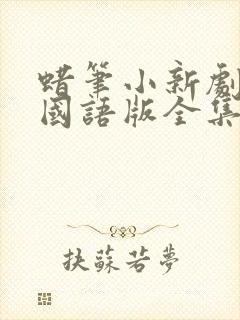 蜡筆小新劇
國語版全集
抉蘇若夢